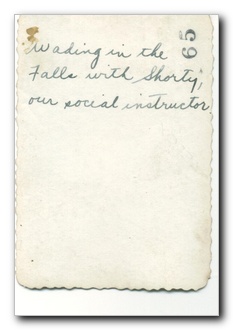 Wading in the
Falls with "Shorty",
our social instructor
65